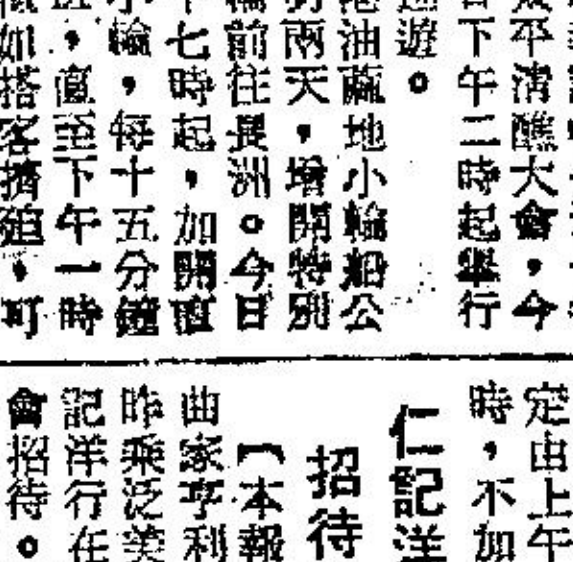 平清醮大會，今
下午二時起舉行
遊。
油蔴地小輪船公
兩天，增開特別
前往長洲。今日
七時起，加開直
輪，每十五分鐘
，直至下午一時
如搭客擠迫，可
定由上午
時，不加
仁記洋
招待
【本報
曲家亨利
昨乘泛美
記洋行在
會招待。